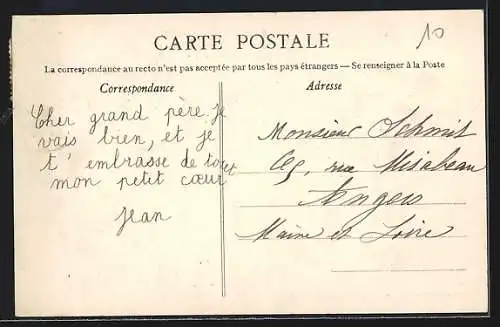 10
CARTE POSTALE
La correspondance au recto n'est pas acceptée par tous les pays étrangers — Se renseigner à la Poste
Correspondance
Adresse
Cher grand père je
vais bien, et je
t'embrasse de tout
mon petit cœur
Jean
Monsieur Schmit
rue Mirabeau
Angers
Maine et Loire